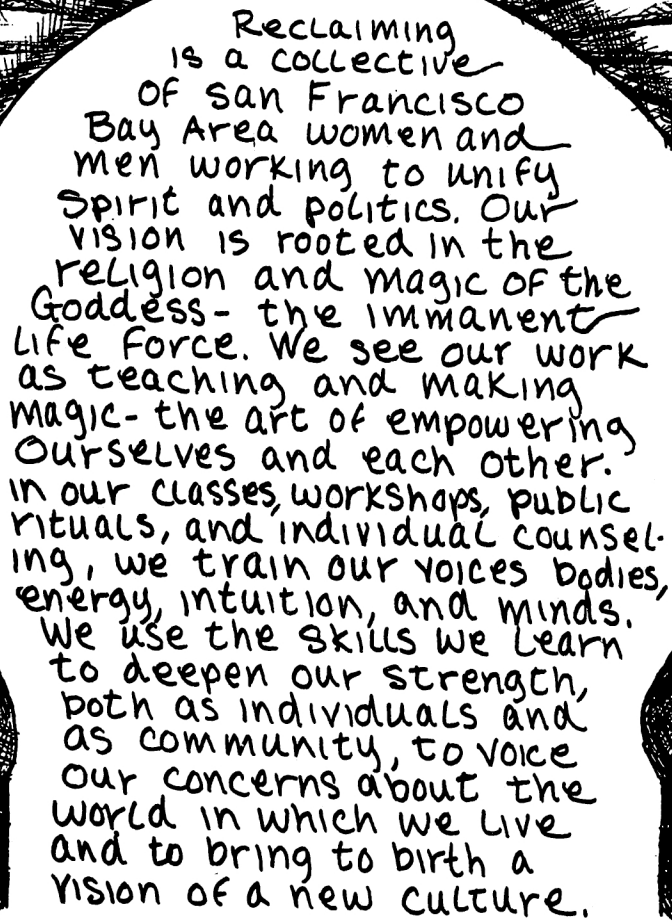 Reclaiming
is a collective
of San Francisco
Bay Area women and
men working to unify
spirit and politics. Our
vision is rooted in the
religion and magic of the
Goddess- the immanent
Life Force. We see our work
as teaching and making
magic- the art of empowering
ourselves and each other.
In our classes, workshops, public
rituals, and individual counsel-
ing, we train our voices bodies,
energy, intuition, and minds.
We use the skills we learn
to deepen our strength,
both as individuals and
as community, to voice
our concerns about the
world in which we live
and to bring to birth a
vision of a new culture.